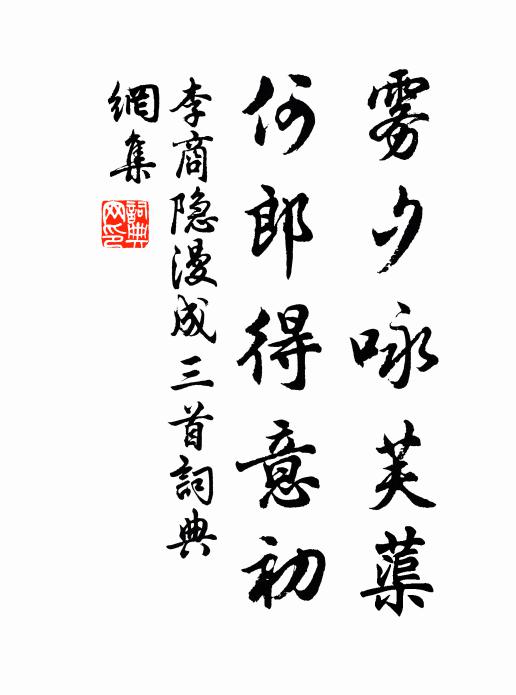 雾夕咏芙蕖
何郎得意初
李商隐漫成三首詞典
網集
詞典
网印